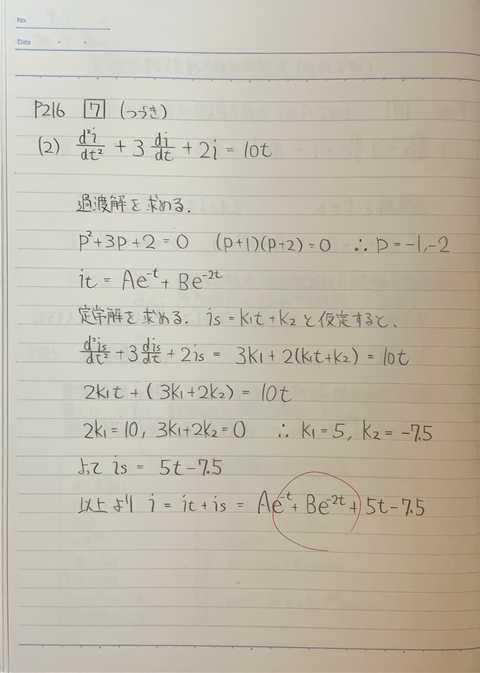 No.
Date
P216 7 (つづき)
(2) d²i/dt² + 3 di/dt + 2i = 10t
過渡解を求める.
p²+3p+2=0 (p+1)(p+2)=0 ∴ p=-1,-2
it = Ae⁻ᵗ + Be⁻²ᵗ
定常解を求める. is = k₁t+k₂ と仮定すると、
d²is/dt² + 3 dis/dt + 2is = 3k₁+2(k₁t+k₂) = 10t
2k₁t + (3k₁+2k₂) = 10t
2k₁=10, 3k₁+2k₂=0 ∴ k₁=5, k₂=-7.5
よって is = 5t-7.5
以上より i = it+is = Ae⁻ᵗ + Be⁻²ᵗ + 5t-7.5